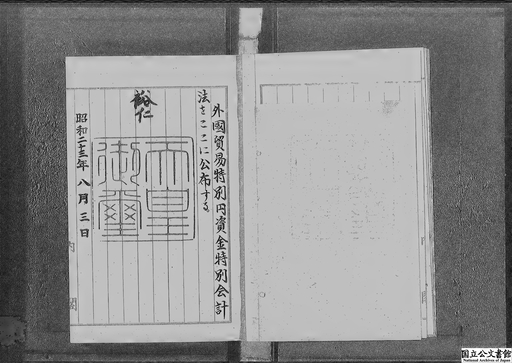 外國貿易特別円資金特別会計
法をここに公布する
裕仁
天皇
御璽
昭和二十三年八月三日
内閣
国立公文書館
National Archives of Japan